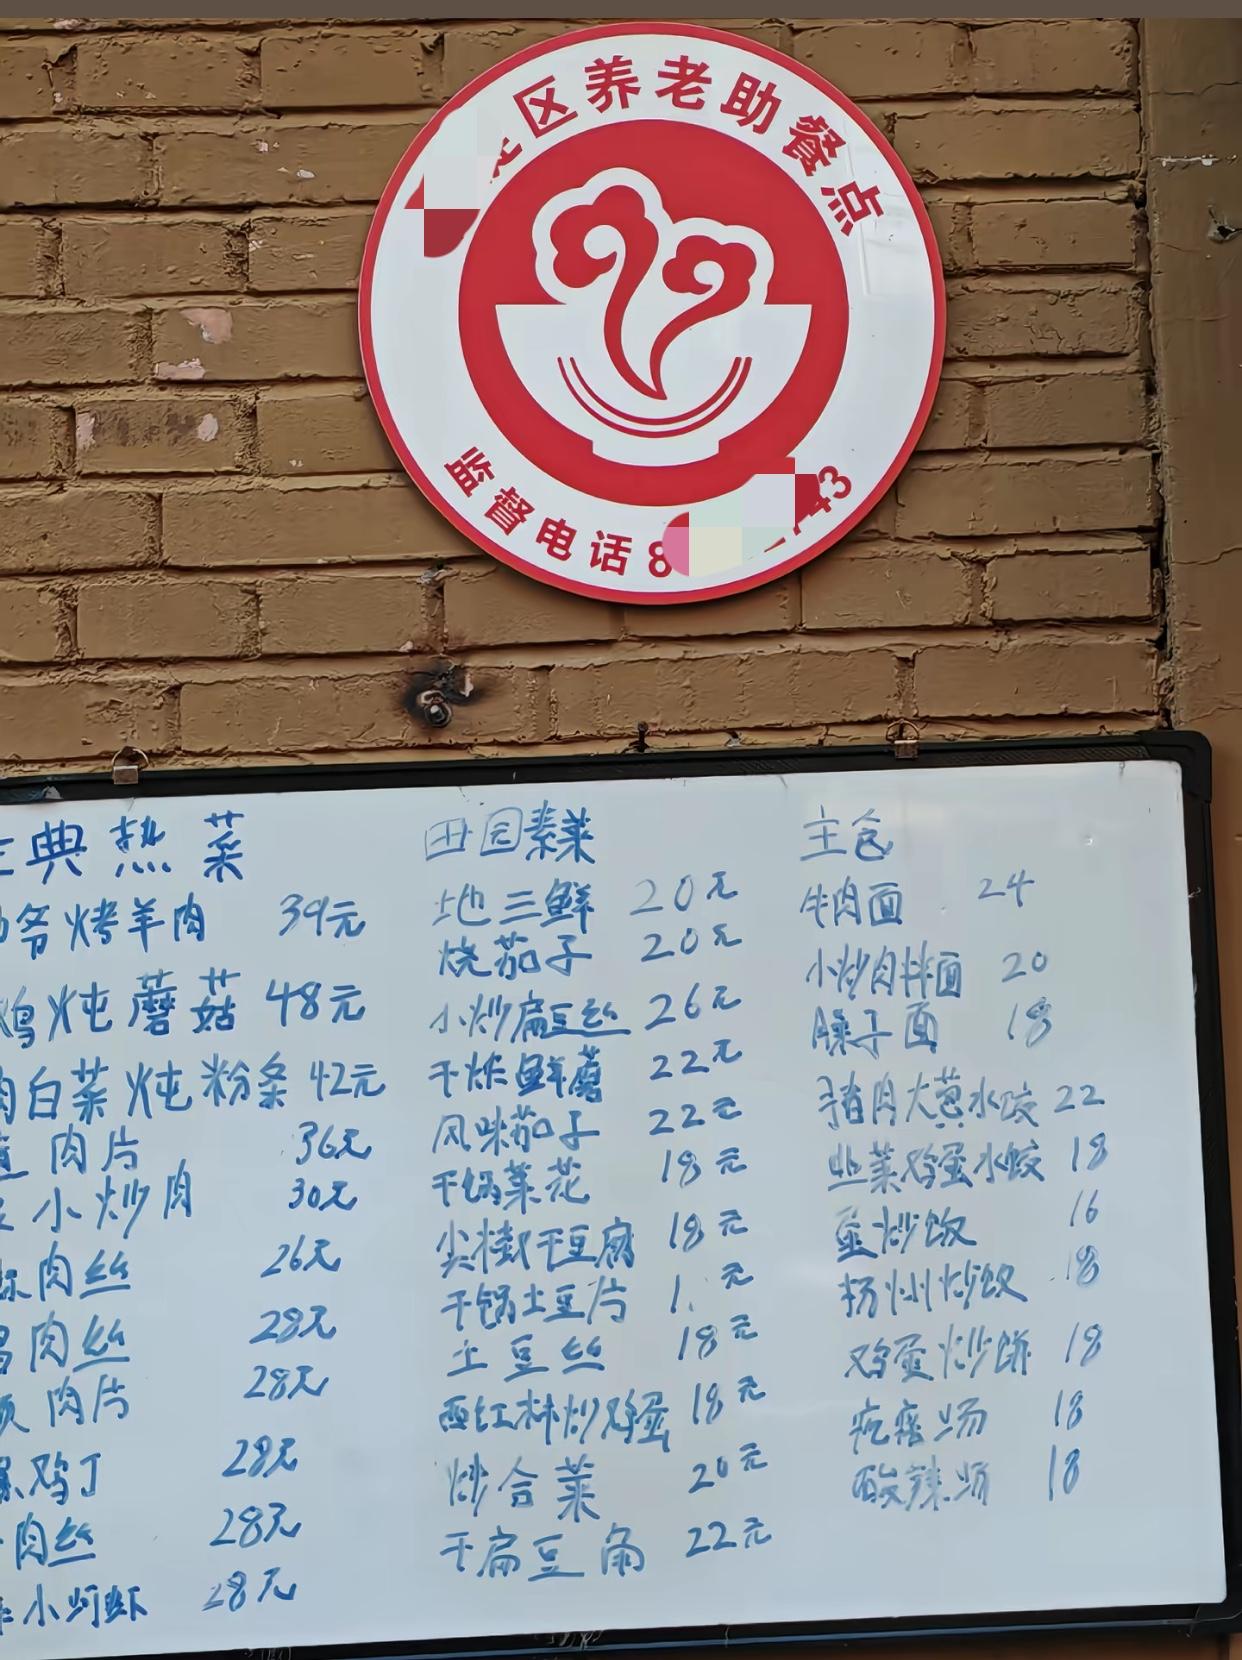 区养老助餐点
监督电话8 43
典热菜
烤羊肉 39元
鸡炖蘑菇 48元
肉白菜炖粉条 42元
肉片 36元
小炒肉 30元
肉丝 26元
肉丝 28元
肉片 28元
鸡丁 28元
肉丝 28元
小河虾 28元
田园素菜
地三鲜 20元
烧茄子 20元
小炒扁豆丝 26元
干炸鲜蘑 22元
风味茄子 22元
干锅菜花 18元
尖椒干豆腐 18元
干锅土豆片 1. 元
土豆丝 18元
西红柿炒鸡蛋 18元
炒合菜 20元
干扁豆角 22元
主食
牛肉面 24
小炒肉拌面 20
臊子面 18
猪肉大葱水饺 22
韭菜鸡蛋水饺 18
蛋炒饭 16
扬州炒饭 18
鸡蛋炒饼 18
疙瘩汤 18
酸辣汤 18